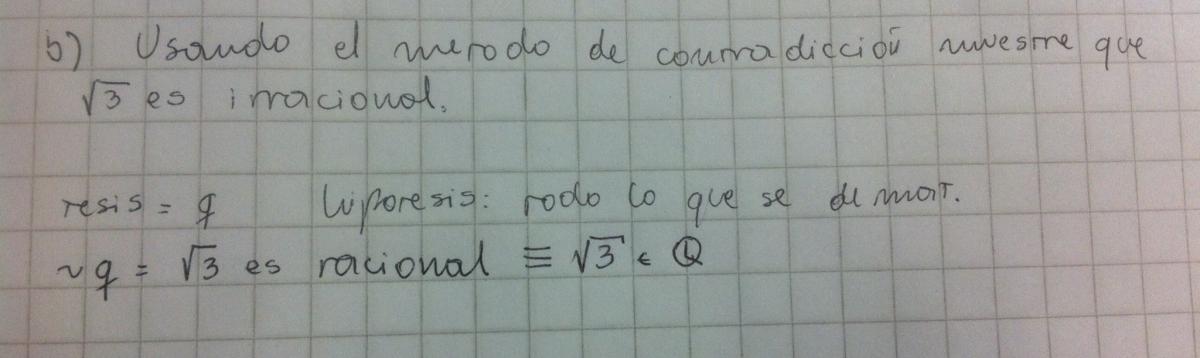 b) Usando el metodo de contradicción muestre que
√3 es irracional.
tesis = q hipotesis: todo lo que se de mat.
~q = √3 es racional ≡ √3 ∈ ℚ